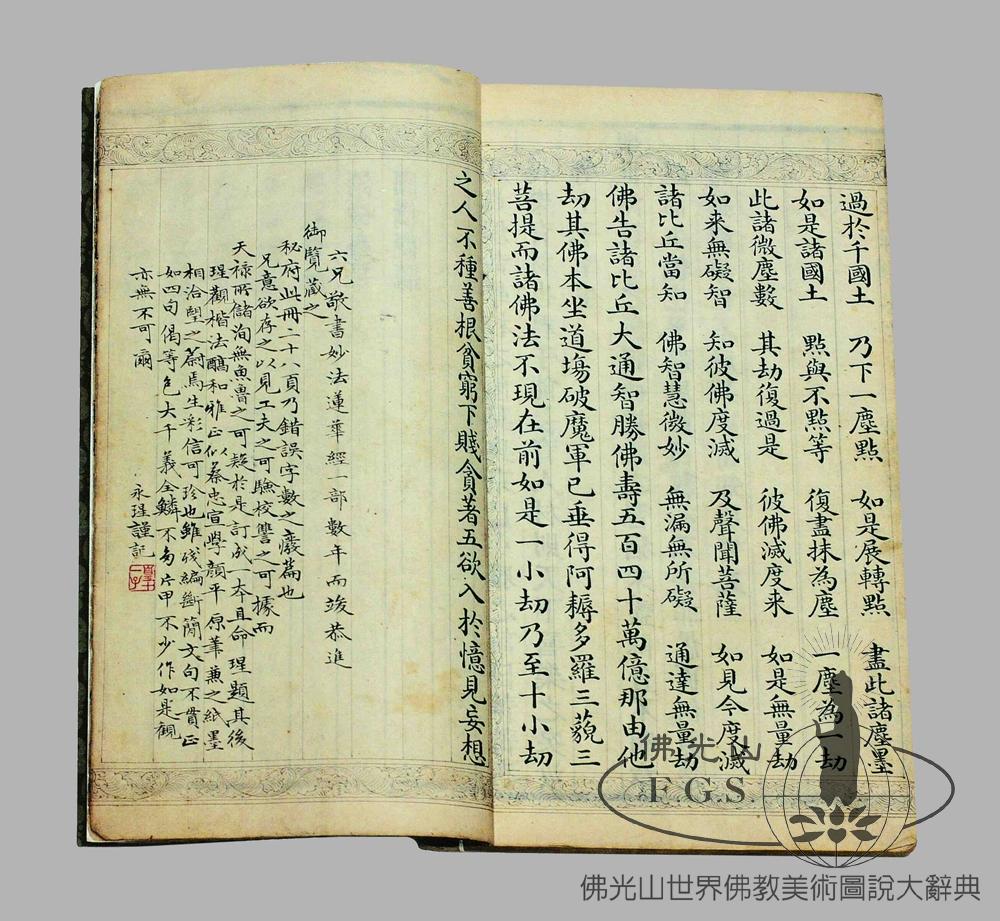 過於千國土 乃下一塵點 如是展轉點 盡此諸塵墨
如是諸國土 點與不點等 復盡抹為塵 一塵為一劫
此諸微塵數 其劫復過是 彼佛滅度來 如是無量劫
如來無礙智 知彼佛度滅 及聲聞菩薩 如見今度滅
諸比丘當知 佛智慧微妙 無漏無所礙 通達無量劫
佛告諸比丘大通智勝佛壽五百四十萬億那由他
劫其佛本坐道場破魔軍已垂得阿耨多羅三藐三
菩提而諸佛法不現在前如是一小劫乃至十小劫
之人不種善根貧窮下賤貪著五欲入於憶見妄想
六兄敬書妙法蓮華經一部數年而竣恭進
御覽藏之
秘府此冊二十八頁乃錯誤字數之廢篇也
兄意欲存之以見工夫之可驗校讐之可據而
天祿所儲洵無魚魯之可疑於是訂成一本且命瑆題其後
瑆觀楷法醕和雅正似蔡忠宣學顏平原筆兼之紙墨
相洽望之蔚焉生彩信可珍也雖殘編斷簡文句不貫正
如四句偈等包大千義全鱗不易片甲不少作如是觀
亦無不可爾
永瑆謹記
佛光山
F.G.S.
佛光山世界佛教美術圖說大辭典